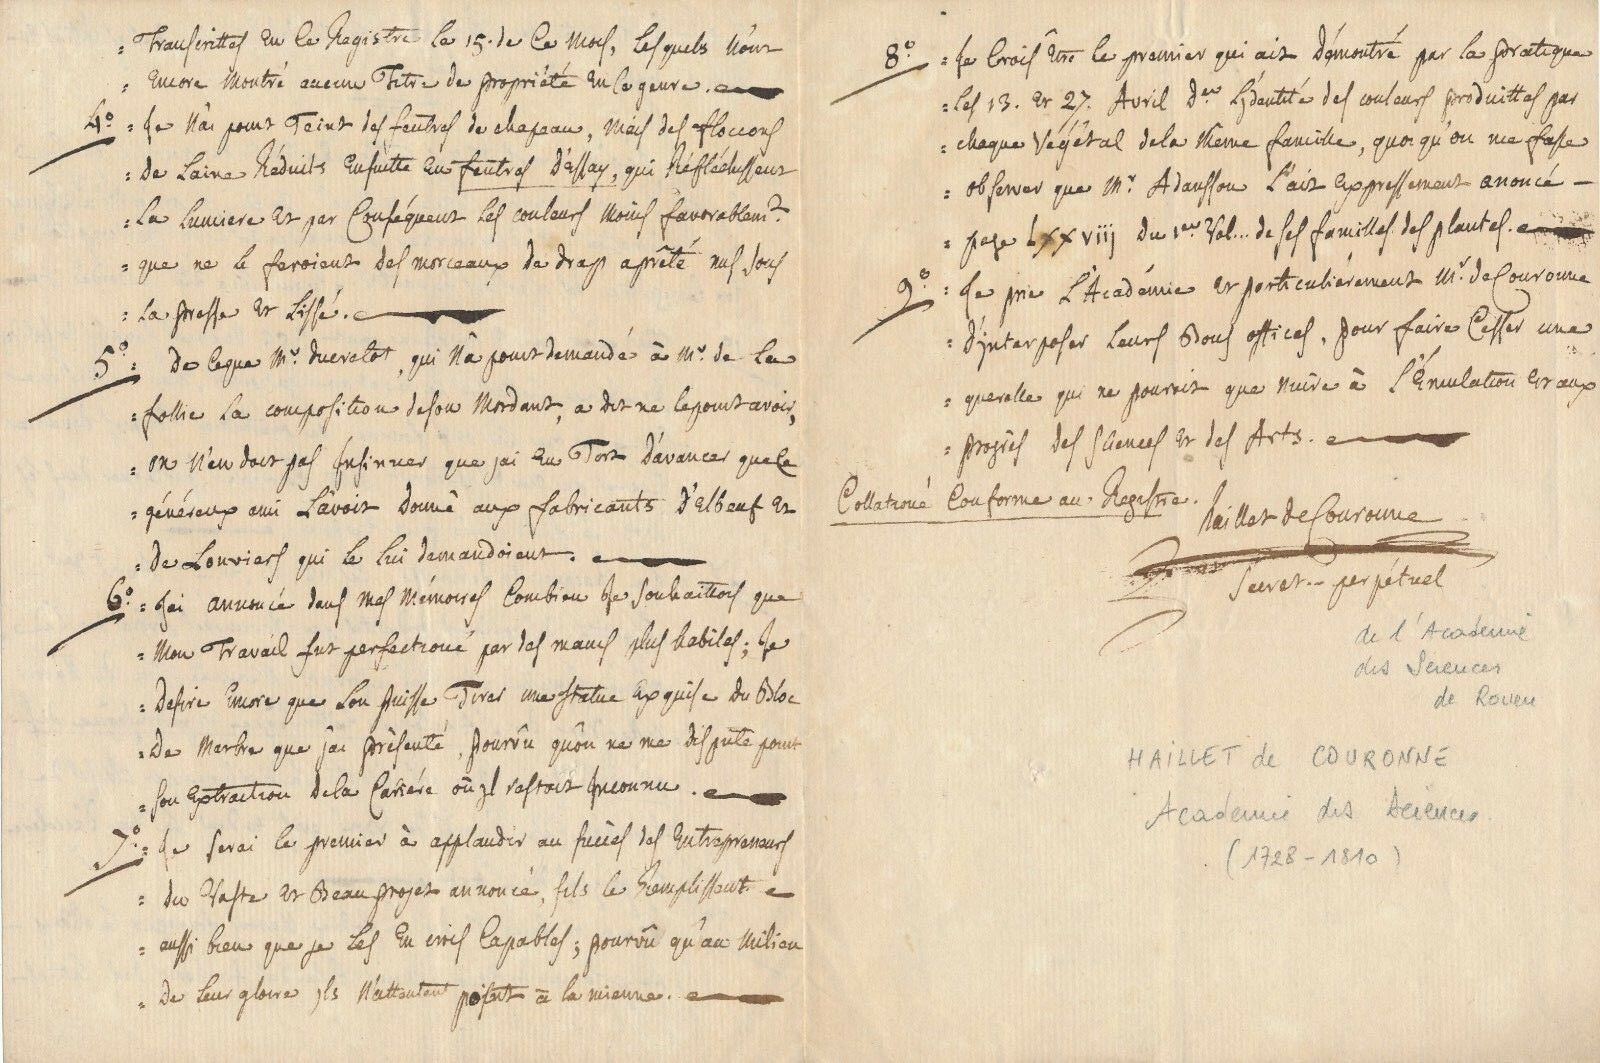 Transcrittes en ce Registre le 15. de ce mois, lesquels n'ont
encore montré aucun Titre de propriété en ce genre.
4° Je n'ai point Teint des feutres de chapeau, mais des floccons
De Laine Réduits ensuitte en feutres D'essay, qui Réfléchissent
La Lumiere et par Conséquent les couleurs moins favorablem.t
que ne le feroient des morceaux de drap aprêté mis sous
La presse et Lissé.
5° De ceque Mr. ducrelot, qui n'a point demandé à Mr. de La
follie La composition deson Mordant, a dit ne lepoint avoir,
on n'en doit pas insinuer que jai eu Tort D'avancer quece
généreux ami L'avoit Donné aux fabricants D'Elbeuf et
De Louviers qui le lui demandoient.
6° J'ai annoncé dans mes Mémoires Combien Je souhaittois que
Mon Travail fut perfectioné par des mains plus habiles; Je
Desire encore que Lon puisse Tirer une statue exquise du Bloc
De Marbre que j'ai présenté, pourvû qu'on ne me dispute point
son extraction dela Cariére où jl restoit inconnu.
7° Je serai le premier à applaudir au succès des Entrepreneurs
du Vaste et Beau projet annoncé, sils le Remplissent
aussi bien que je les en crois Capables; pourvû qu'au milieu
De leur gloire jls n'attentent point à la mienne.
8° Je Crois être le premier qui ait Démontré par la pratique
Les 13. et 27. Avril Der L'jdentité des couleurs produittes par
chaque Végétal dela même famille, quoiqu'on me fasse
observer que Mr Adansson L'ait expressement anoncé
page Lxxviij Du 1er Vol... de ses familles des plantes.
9° Je prie L'Académie et particuliérement Mr. deCouronne
D'jnterposer Leurs Bons offices, pour faire Cesser une
querelle qui ne pouroit que nuire à L'Émulation et aux
progrès des sciences et des Arts.
Collationé Conforme au Registre.
haillet deCouronne
Secret.. perpétuel
de l'Academie
des Sciences
de Rouen
HAILLET de COURONNE
Academie des Sciences
(1728-1810)